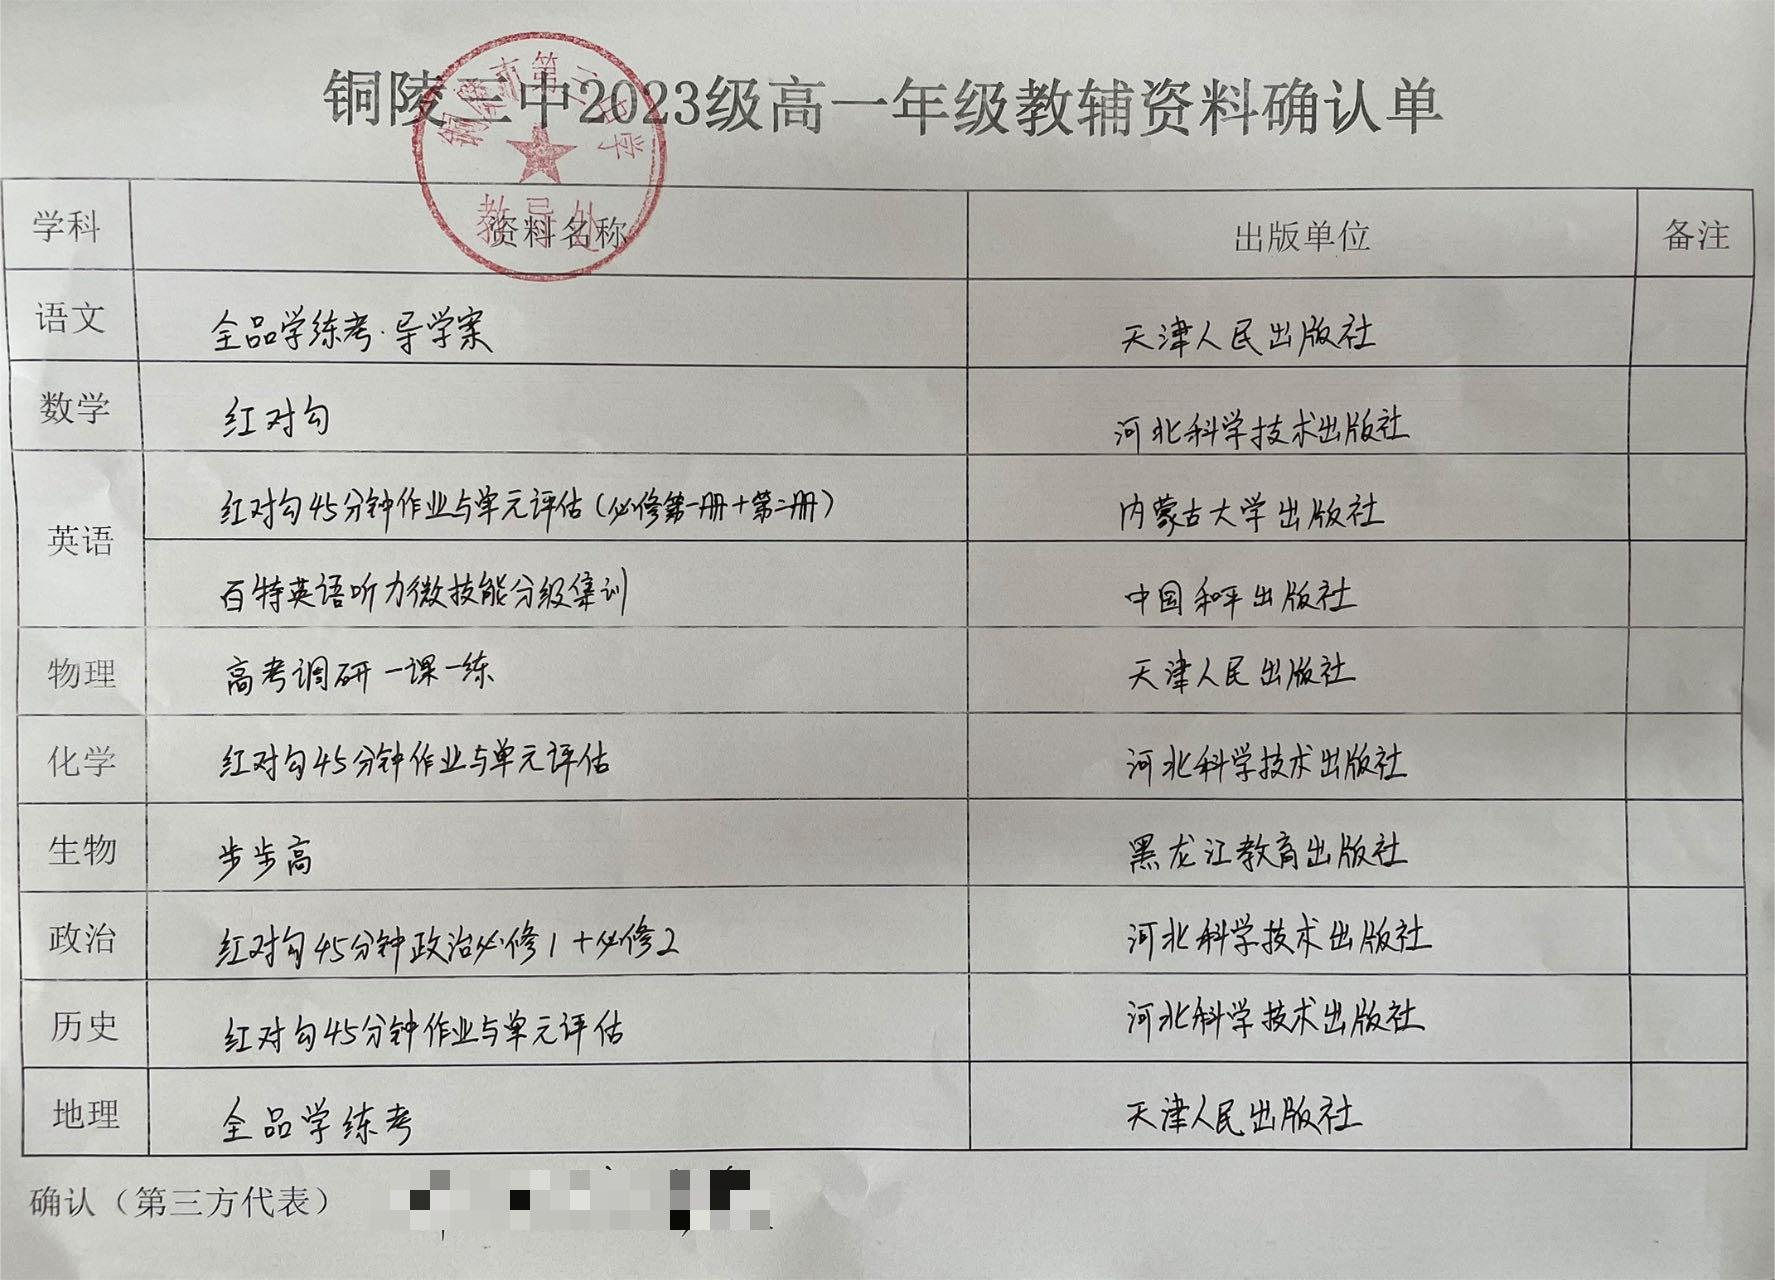 铜陵三中2023级高一年级教辅资料确认单
铜陵市第三中学
教导处
学科 资料名称 出版单位 备注
语文 全品学练考·导学案 天津人民出版社
数学 红对勾 河北科学技术出版社
英语 红对勾45分钟作业与单元评估(必修第一册+第二册) 内蒙古大学出版社
百特英语听力微技能分级集训 中国和平出版社
物理 高考调研一课一练 天津人民出版社
化学 红对勾45分钟作业与单元评估 河北科学技术出版社
生物 步步高 黑龙江教育出版社
政治 红对勾45分钟政治必修1+必修2 河北科学技术出版社
历史 红对勾45分钟作业与单元评估 河北科学技术出版社
地理 全品学练考 天津人民出版社
确认（第三方代表）